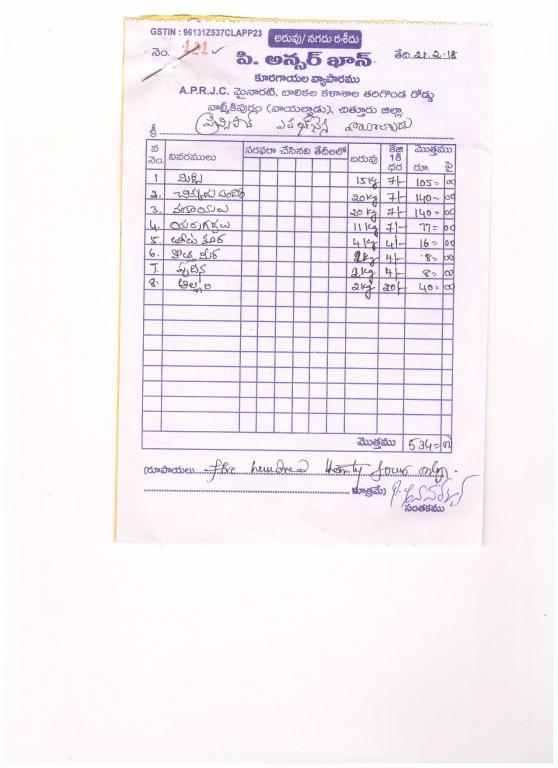 GSTIN : 96131Z537CLAPP23
అరువు/ నగదు రశీదు
నెం. 121
తేది 21.2.18
పి. అన్సర్ ఖాన్
కూరగాయల వ్యాపారము
A.P.R.J.C. మైనారటి, బాలికల కళాశాల తరిగొండ రోడ్డు
వాల్మీకిపురం (వాయల్పాడు), చిత్తూరు జిల్లా.
శ్రీ
వ నెం. వివరములు సరఫరా చేసినవి తేదీలలో బరువు కేజి 1కి ధర మొత్తము రూ. పై
1 మిర్చి 15kg 7/- 105= 00
2. చిక్కుడు 20kg 7/- 140= 00
3. వంకాయలు 20kg 7/- 140= 00
4. యర్రగడ్డలు 11kg 7/- 77= 00
5. 4kg 4/- 16= 00
6. కొత్తిమీర 2kg 4/- 8= 00
7. పుదీన 2kg 4/- 8= 00
8. అల్లం 2kg 20/- 40= 00
మొత్తము 534= 00
(రూపాయలు five hundred thirty four only.
మాత్రమే)
సంతకము